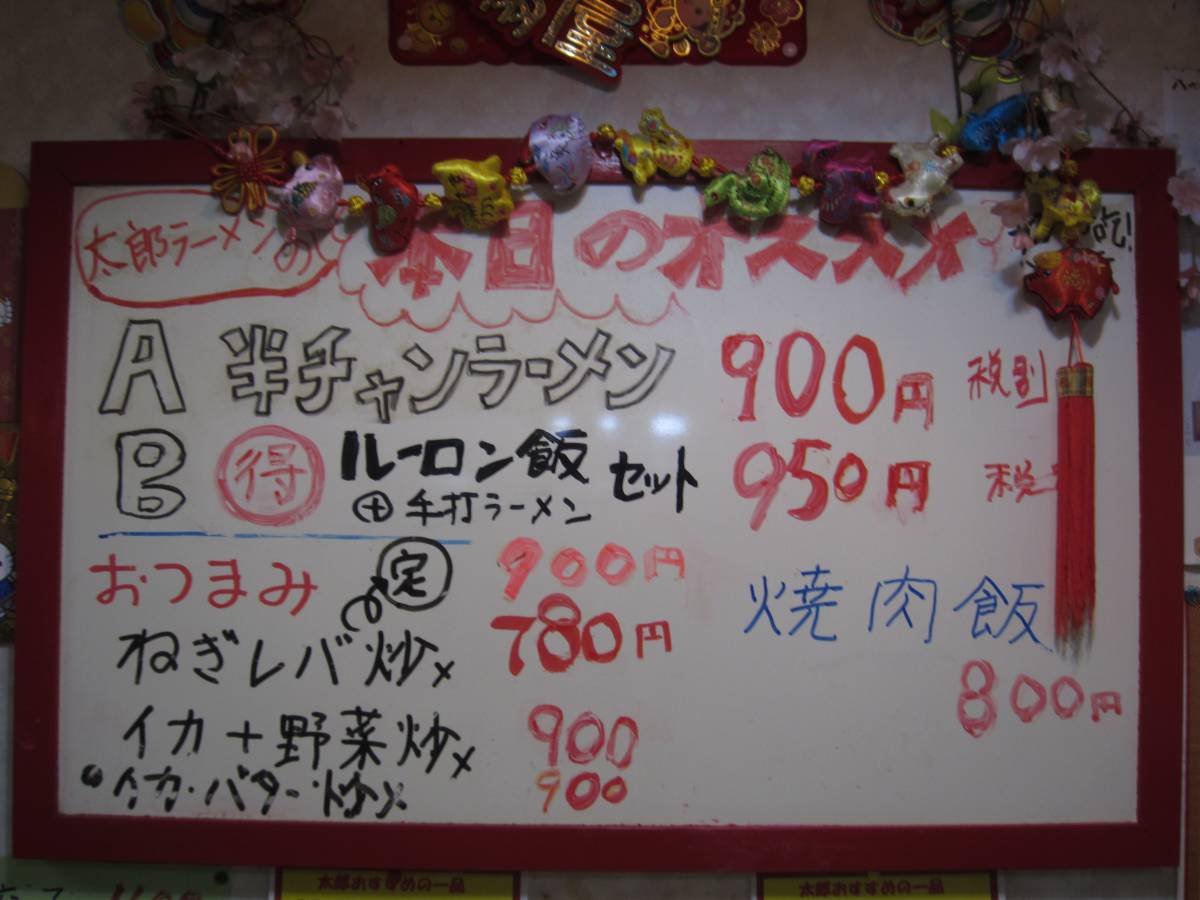 太郎ラーメンの 本日のオススメ
A 半チャンラーメン 900円 税別
B 得 ルーロン飯 セット 950円 税
⊕ 手打ラーメン
おつまみ 定 900円
ねぎレバ炒メ 780円
焼肉飯
800円
イカ+野菜炒メ 900
・イカ・バター炒メ 900
太郎おすすめの一品
太郎おすすめの一品